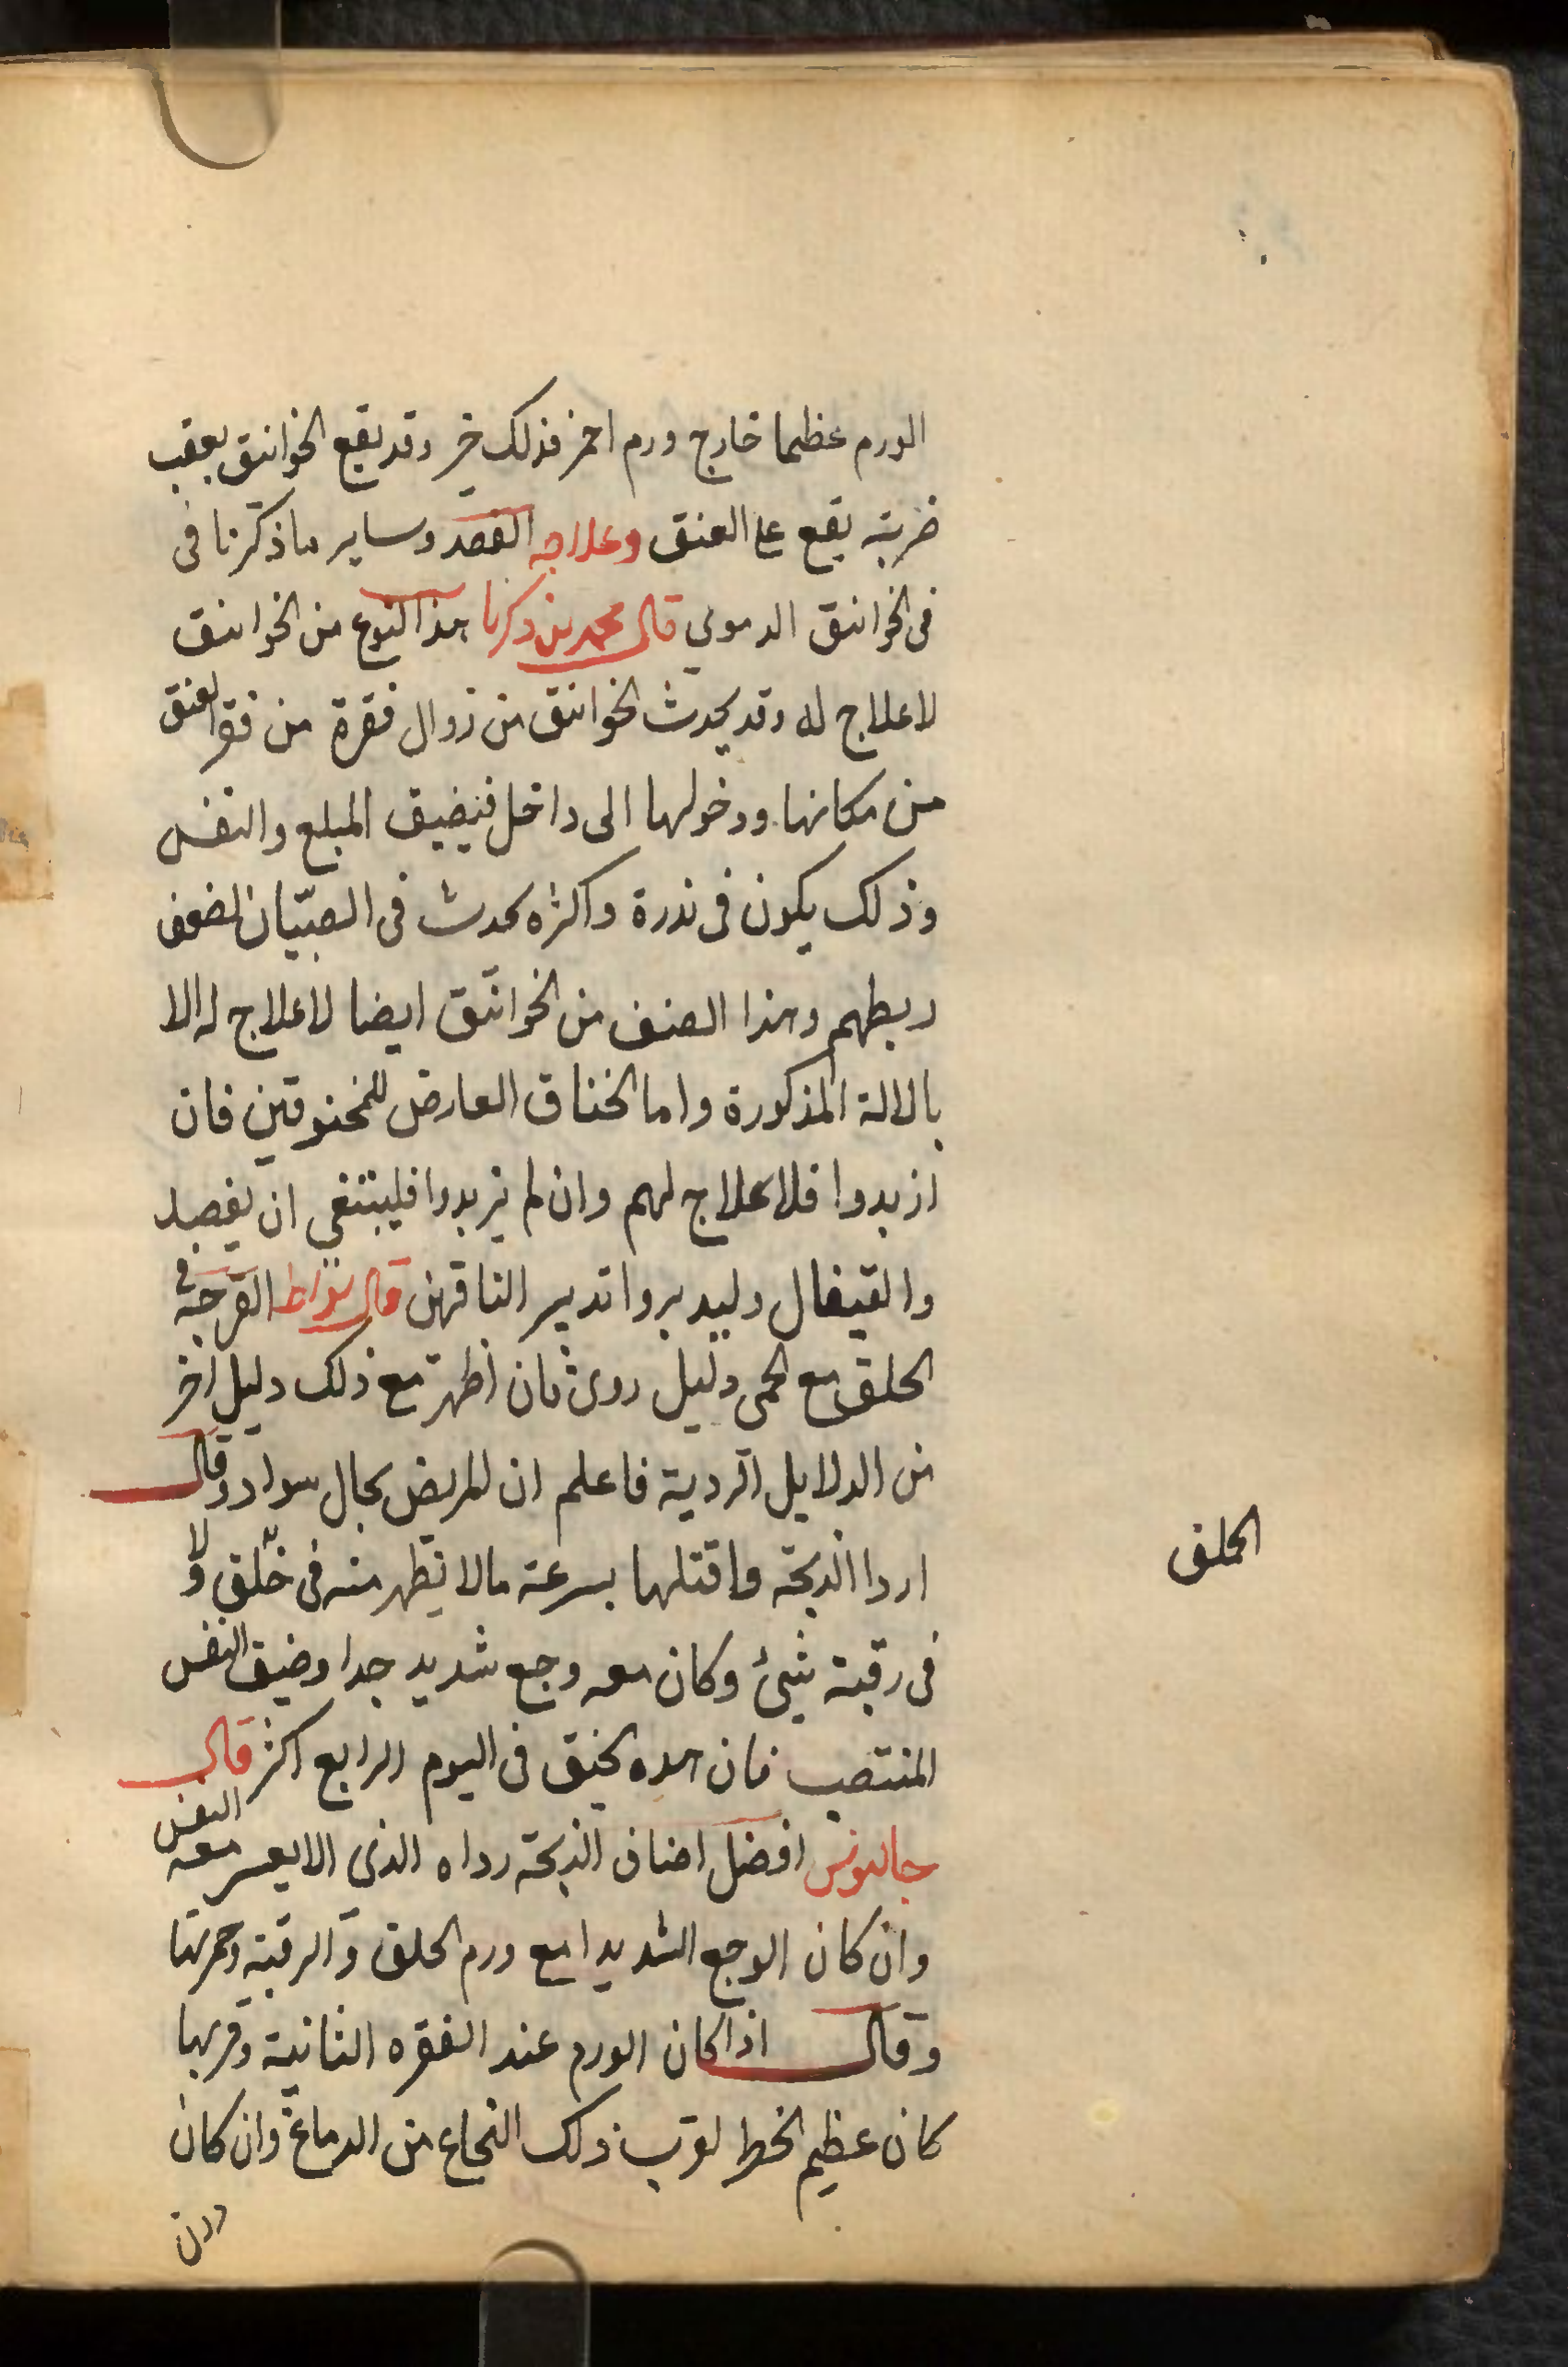 الورم عظيما خارج ورم احمر فذلك خير وقد يقع الخوانيق بعقب
ضربة يقع على العنق وعلاجه الفصد وساير ما ذكرنا فى
فى الخوانيق الدموي قال محمد بن زكريا هذا النوع من الخوانيق
لا علاج له وقد يحدث الخوانيق من زوال فقرة من فقر العنق
من مكانها ودخولها الى داخل فيضيق المبلع والنفس
وذلك يكون فى ندرة واكثره يحدث فى الصبيان لضعف
ربطهم وهذا الصنف من الخوانيق ايضا لا علاج له الا
بالالة المذكورة واما الخناق العارض للمخنوقين فان
ازبدوا فلا علاج لهم وان لم يزبدوا فلينبغي ان يفصد
والقيفال وليدبروا تدبير الناقهين قال بقراط القرحة فى
الحلق مع الحمى دليل ردى فان اظهر مع ذلك دليل اخر
من الدلايل الردية فاعلم ان للمريض بحال سوا وقال
اردا الذبحة واقتلها بسرعة مالا يظهر منه فى حلق ولا
فى رقبة شيئ وكان معه وجع شديد جدا وضيق النفس
المنتصب فان هذه يخنق فى اليوم الرابع اكثر قال
جالينوس افضل اصناف الذبحة رداه الذى الا يعسر معه النفس
وان كان الوجع الشديدا مع ورم الحلق والرقبة وحمرتها
وقال اذا كان الورم عند الفقره الثانية وقربها
كان عظيم الخطر لقرب ذلك النخاع من الدماغ وان كان
دون
الحلق